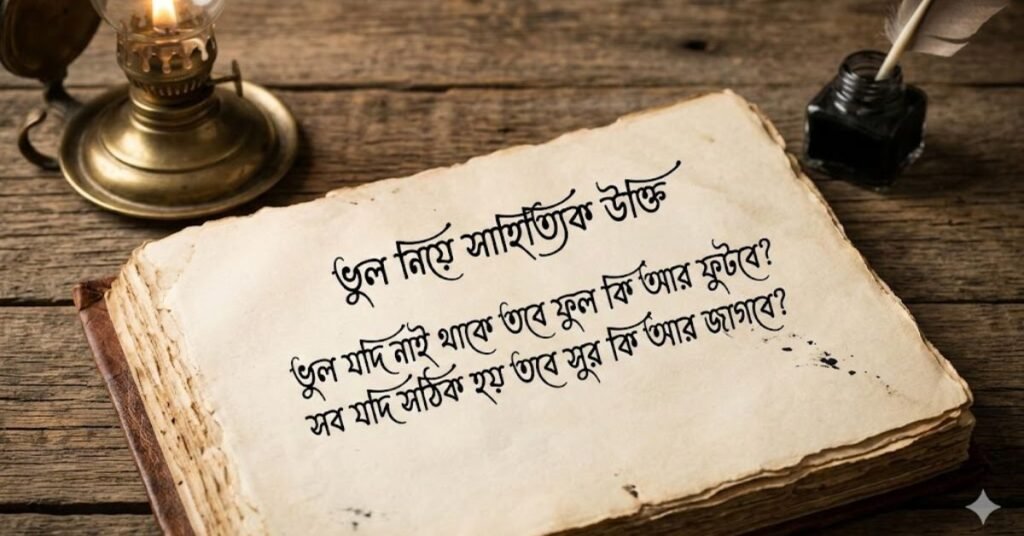 ভুল নিয়ে সাহিত্যিক উক্তি
ভুল যদি নাই থাকে তবে ফুল কি আর ফুটবে?
সব যদি সঠিক হয় তবে সুর কি আর জাগবে?